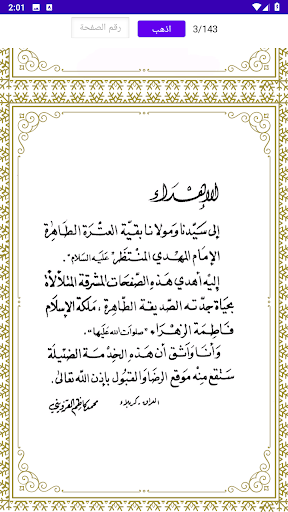 2:01
3/143
اذهب
رقم الصفحة
الإهداء
إلى سيّدنا ومولانا بقيّة العترة الطاهرة
الإمام المهدي المنتظر "عليه السلام".
إليه أهدي هذه الصفحات المشرقة المتلألأة
بحياة جدّته الصديقة الطاهرة، ملكة الإسلام
فاطمة الزهراء "صلوات الله عليها".
وأنا واثق أن هذه الخدمة الضئيلة
ستقع منه موقع الرضا والقبول بإذن الله تعالى.
العراق - كربلاء
محمد كاظم القزويني